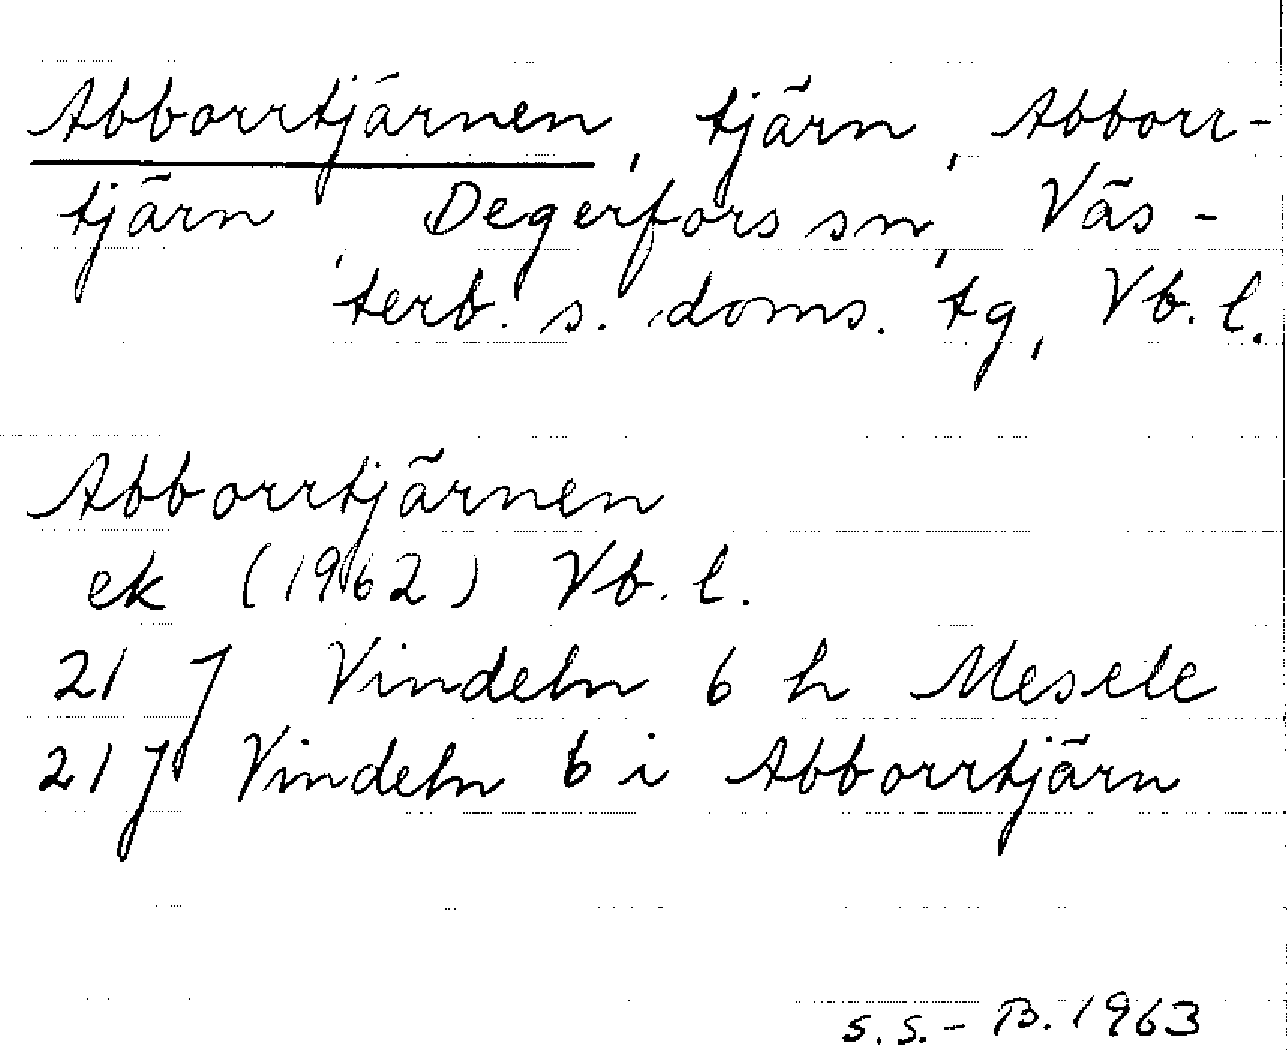 Abborrtjärnen, tjärn, Abborr-
tjärn, Degerfors sn, Väs-
terb. s. doms. tg, Vb. l.
Abborrtjärnen
ek (1962) Vb. l.
21 J Vindeln 6 h Mesele
21 J Vindeln 6 i Abborrtjärn
S. S.-B. 1963